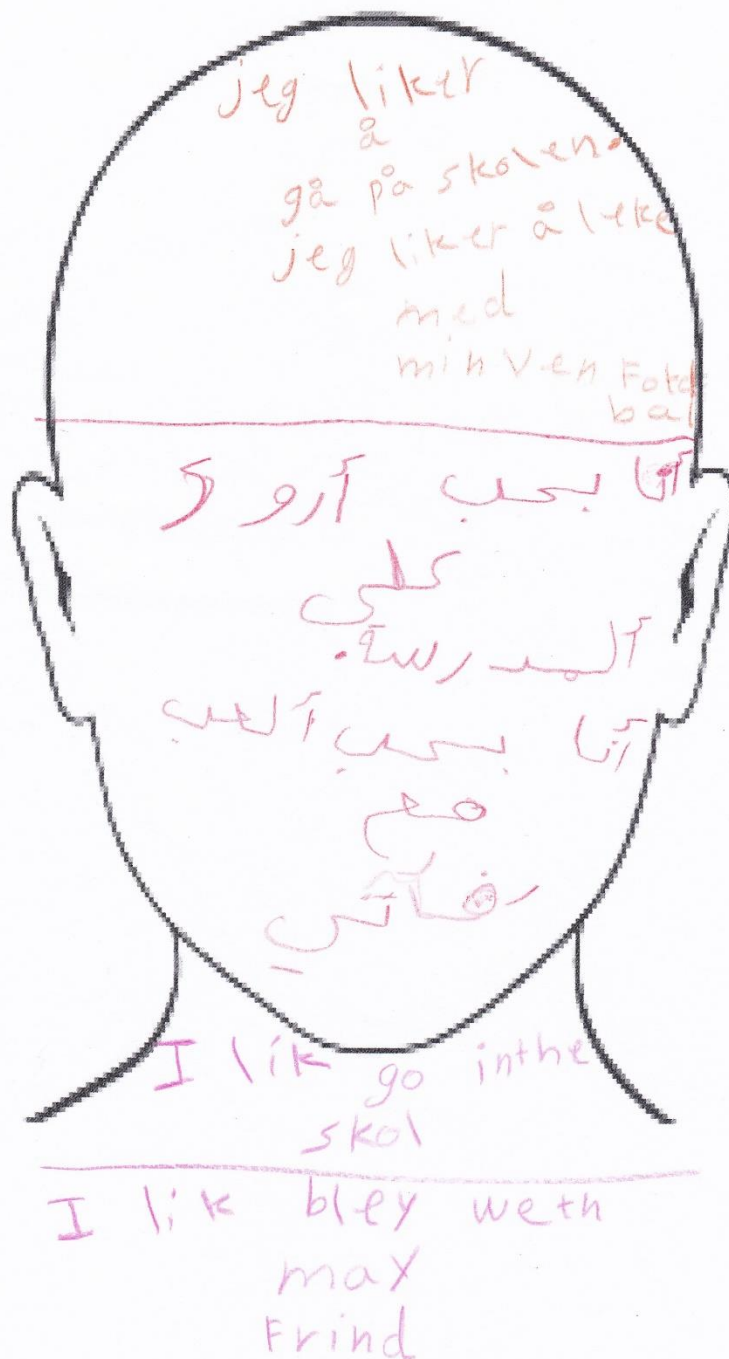 jeg liker
å
gå på skolen.
jeg liker å leke
med
min ven Fotd
bal
أنا بحب أروح
على
ألمدرسة.
أنا بحب ألعب
مع
رفقاتي
I lik go inthe
skol
I lik bley weth
may
Frind